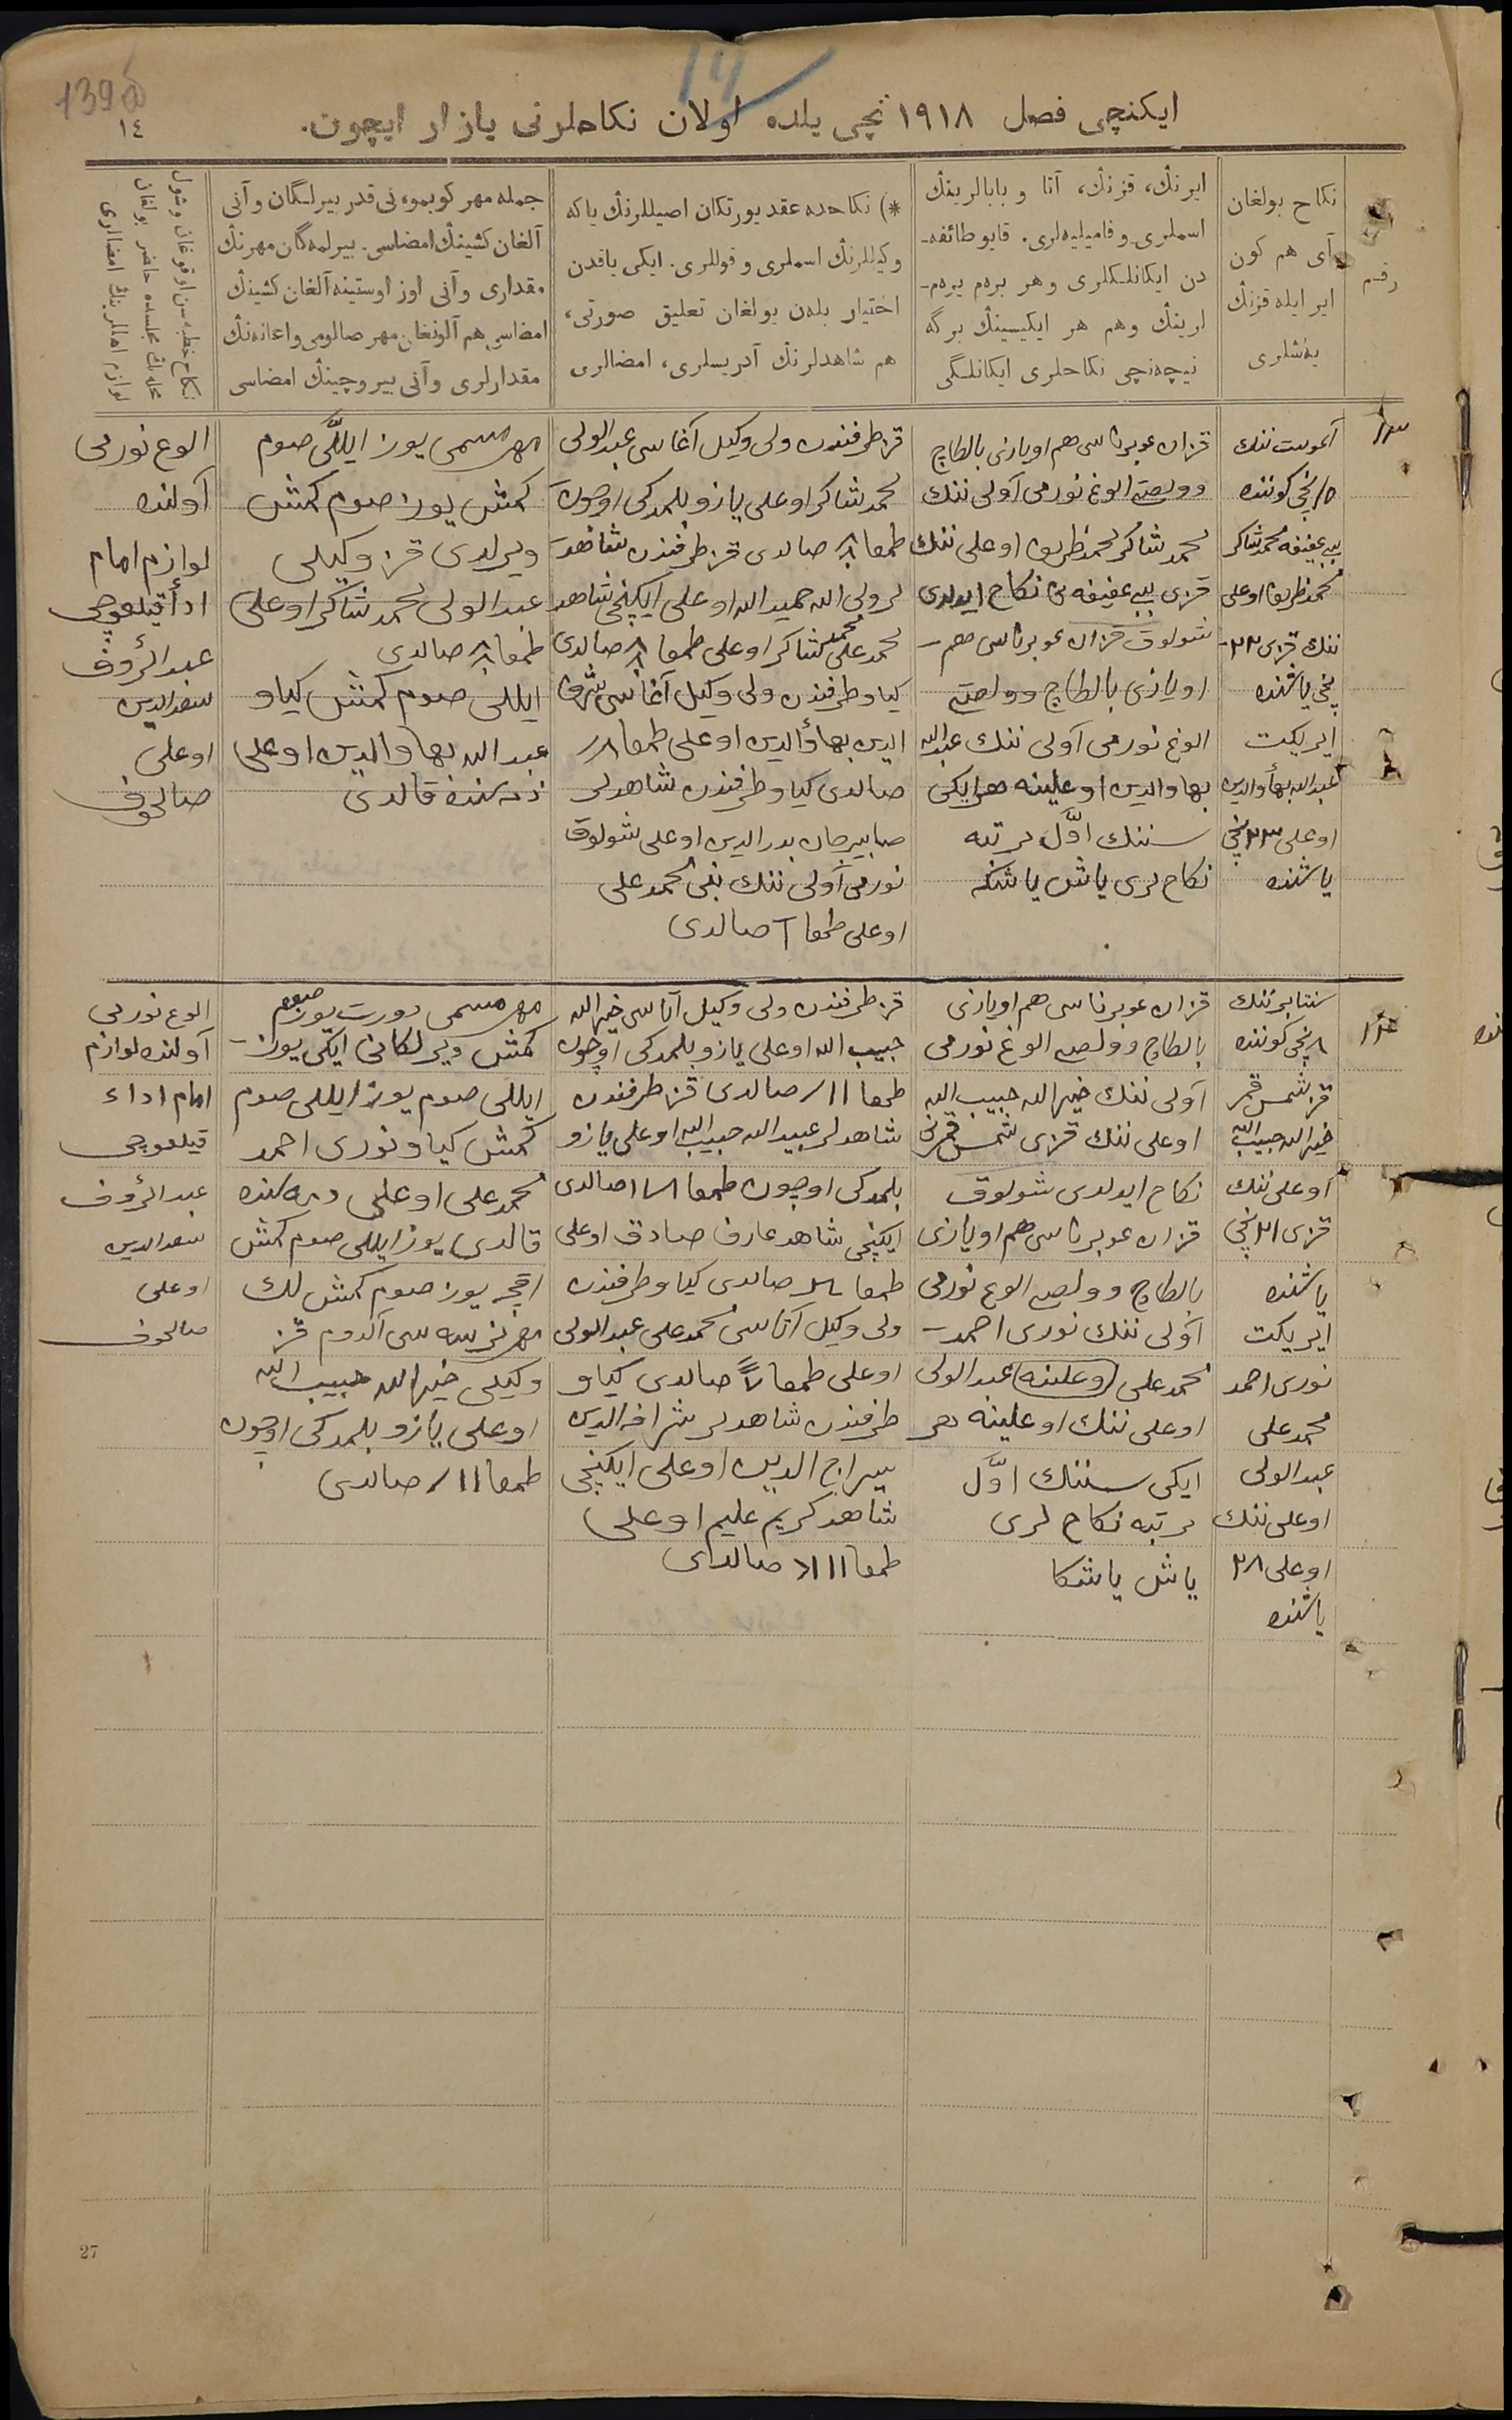 139
14
١٤
ايكنچی فصل ١٩١٨ نچی يلده اولان نكاحلرنی يازار ايچون.
رقم
نكاح بولغان
آی هم كون
اير ايله قزنڭ
يەشلری
ايرنڭ، قزنڭ، آتا و بابالرينڭ
اسملری و فاميليەلری. قايو طائفه‌ـ
دن ايكانلكلری وهر برەم يرەم‌ـ
لرينڭ وهم هر ايكيسينڭ برگه
نيچەنچی نكاحلری ايكانلگی
*) نكاحده عقد يورتكان اصيللرنڭ ياكه
وكيللرنڭ اسملری و قوللری. ايكی ياقدن
اختيار بلەن بولغان تعليق صورتی،
هم شاهدلرنڭ آدريسلری، امضالری
جمله مهر كوبمو، نی قدر بيرلگان و آنی
آلغان كشينڭ امضاسی. بيرلمەگان مهرنڭ
مقداری و آنی اوز اوستينه آلغان كشينڭ
امضاسی هم آلونغان مهر صالومی واعانەنڭ
مقدارلری و آنی بيروچينڭ امضاسی
نكاح خطبه‌سن اوقوغان وشول
محله‌نڭ مجلسده حاضر بولغان
لوازم اهاللرينڭ امضالری
١٣
آغوست ننك
١٥ نچی كوننده
بيبی عفيفه محمد شاكر
محمد ظريف اوعلی
ننك قزی ٢٢ـ
نچی ياشنده
ايريكت
عبدالله بهاوالدين
اوعلی ٢٣ نچی
ياشنده
قزان عوبرناسی هم اويازی بالطاچ
وولصتی الوغ نورمی آولی ننك
محمد شاكر محمد ظريف اوعلی ننك
قزی بيبی عفيفه نی نكاح ايدلدی
شولوق قزان عوبرناسی هم ـ
اويازی بالطاچ وولصتی
الوغ نورمی آولی ننك عبدالله
بهاوالدين اوعلينه هر ايكی
سننك اوّل مرتبه
نكاح لری ياش ياشكه
قز طرفندن ولی وكيل آغاسی عبدالولی
محمد شاكر اوعلی يازو بلمدكی اوچون
طمغا صالدی قز طرفندن شاهدـ
لر ولی الله حميدالله اوعلی ايكنچی شاهد
محمد علی محمد شاكر اوعلی طمغا صالدی
كياو طرفندن ولی وكيل آغاسی شرف
الدين بهاؤالدين اوعلی طمغا
صالدی كياو طرفندن شاهدلر
صابيرجان بدرالدين اوعلی شولوق
نورمی آولی ننك نبی محمد علی
اوعلی طمغا صالدی
مهر مسمی يوز ايللّی صوم
كمش يوز صوم كمش
ويرلدی قز وكيلی
عبدالولی محمد شاكر اوعلی
طمغا صالدی
ايللی صوم كمش كياو
عبدالله بهاوالدين اوعلی
ذمه‌سنده قالدی
الوغ نورمی
آولنده
لوازم امام
ادأ قيلغوچی
عبدالرؤف
سعدالدين
اوعلی
صالحوف
١٤
سنتابر ننك
٨ نچی كوننده
قز شمس قمر
خيرالله حبيب الله
اوعلی ننك
قزی ٢١ نچی
ياشنده
ايريكت
نوری احمد
محمد علی
عبدالولی
اوعلی ننك
اوعلی ٢٨
ياشنده
قزان عوبرناسی هم اويازی
بالطاچ وولصتی الوغ نورمی
آولی ننك خيرالله حبيب الله
اوعلی ننك قزی شمس قمرنی
نكاح ايدلدی شولوق
قزان عوبرناسی هم اويازی
بالطاچ وولصتی الوغ نورمی
آولی ننك نوری احمد ـ
محمد علی (اوعلينه) عبدالولی
اوعلی ننك اوعلينه هر
ايكی سننك اوّل
مرتبه نكاح لری
ياش ياشكا
قز طرفندن ولی وكيل آتاسی خيرالله
حبيب الله اوعلی يازو بلمدكی اوچون
طمغا صالدی قز طرفندن
شاهدلر عبيدالله حبيب الله اوعلی يازو
بلمدكی اوچون طمغا صالدی
ايكنچی شاهد عارف صادق اوعلی
طمغا صالدی كياو طرفندن
ولی وكيل آتاسی محمد علی عبدالولی
اوعلی طمغا صالدی كياو
طرفندن شاهدلر شراف الدين
سيراج الدين اوعلی ايكنچی
شاهد كريم عليم اوعلی
طمغا صالدی
مهر مسمی دورت يوز صوم
كمش ويرلكانی ايكی يوز ـ
ايللی صوم يوز ايللی صوم
كمش كياو نوری احمد
محمد علی اوعلی ذمه‌سنده
قالدی يوز ايللی صوم كمش
اقچه يوز صوم كمش لك
آلدوم قز
وكيلی خيرالله حبيب الله
اوعلی يازو بلمدكی اوچون
طمغا صالدی
الوغ نورمی
آولنده لوازم
امام اداء
قيلغوچی
عبدالرؤف
سعدالدين
اوعلی
صالحوف
27